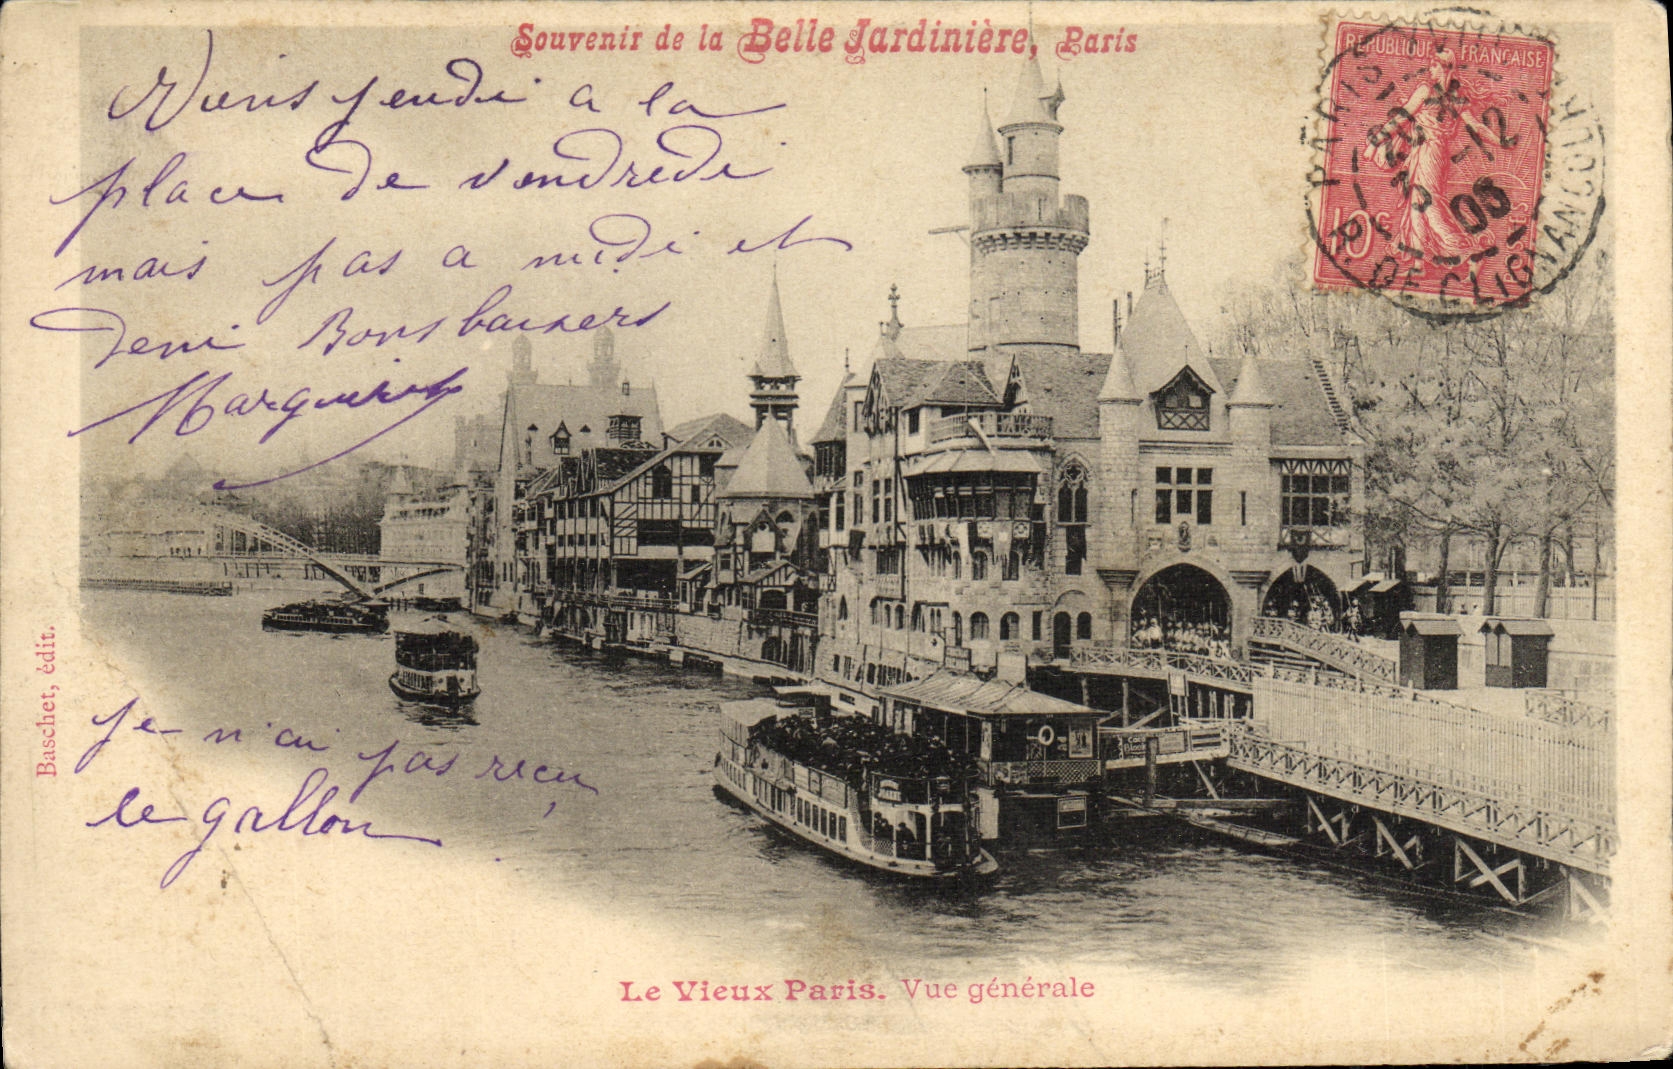 Souvenir de la Belle Jardinière, Paris
Viens jeudi a la
place de vendredi
mais pas a midi et
demi Bons baisers
Marguerite
je n'ai pas reçu
le gallon
REPUBLIQUE FRANÇAISE
10c
PARIS
R. DE CLIGNANCOURT
20 -12
05
Baschet, édit.
Le Vieux Paris. Vue générale